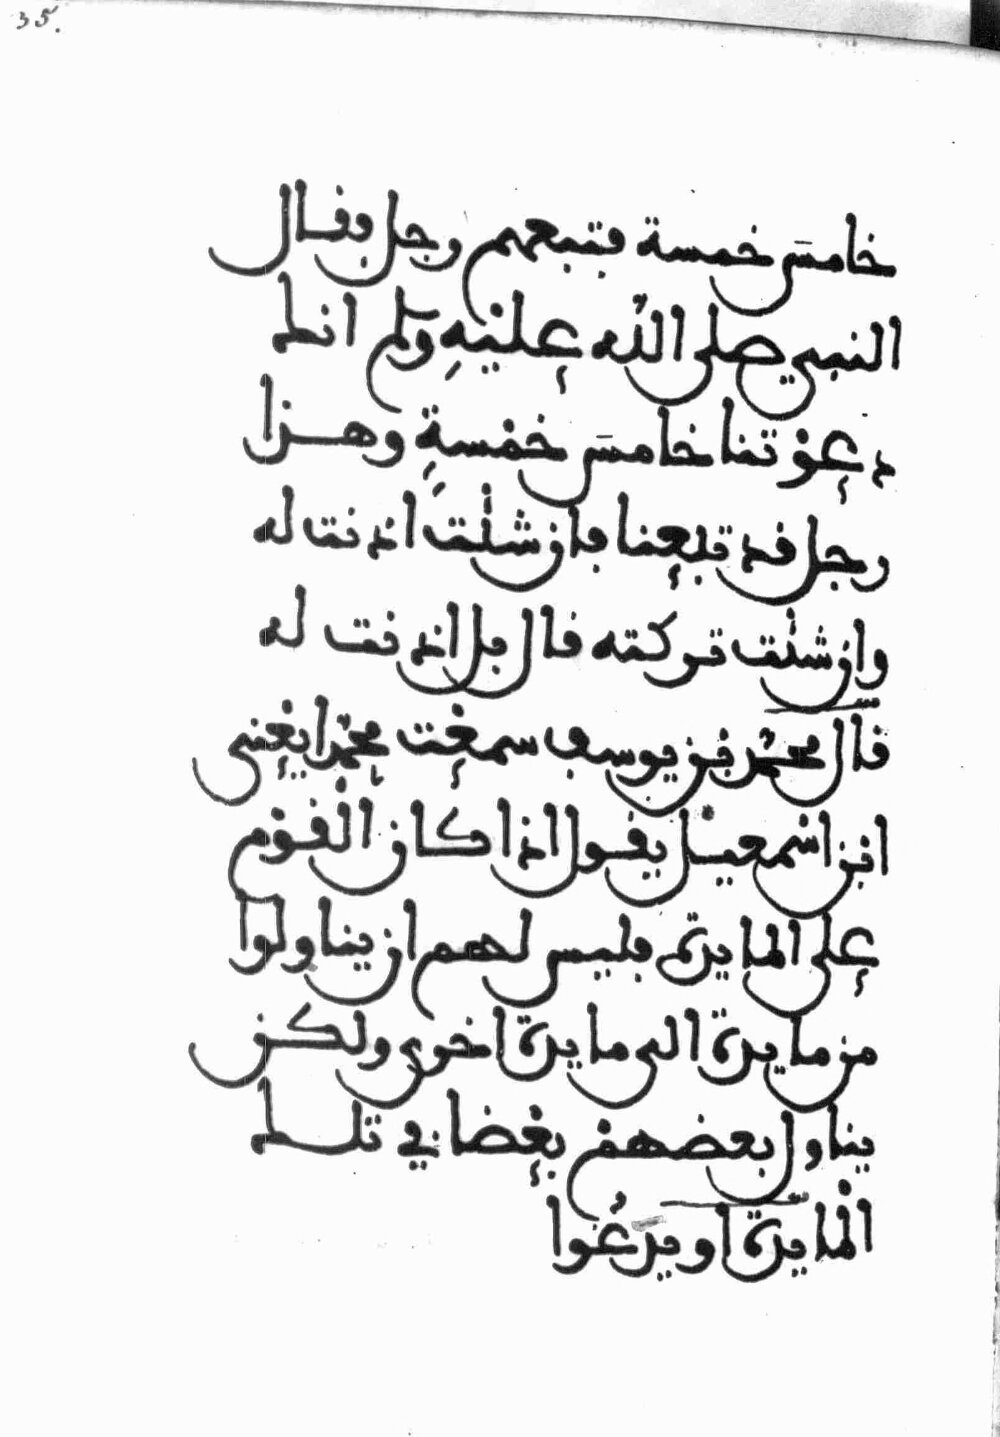 35.
خامسَ خمسة فتبعهم رجل فقال
النبي صلى اللّه عليْهِ وسلم انك
دعوْتنا خامسَ خمْسةٍ وهذا
رجل قد تبعنا فان شئت اذنت له
وان شئت تركته قال بل اذنت له
قال محمّد بن يوسف سمعْت محمّدا يعْني
ابن اسْمعيل يقول اذا كان الْقوْم
على المايدة فليس لهم ان يناولوا
من مايدة الى مايدة اخرى ولكن
يناول بعضهمْ بعْضا في تلك
الْمايدة او يدَعُوا